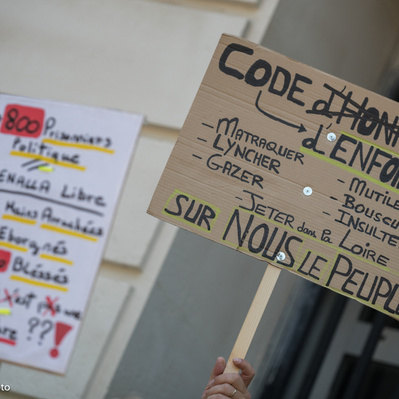 800 Prisonniers
Politique
Libre
Mains Arrachées
Eborgnés
Bléssés
??!
CODE D'HON
d'ENFO
- MATRAQUER
- LYNCHER
- GAZER
- MUTILE
- BOUSCU
- INSULTE
- JETER dans la LOIRE
SUR NOUS LE PEUPLE
to